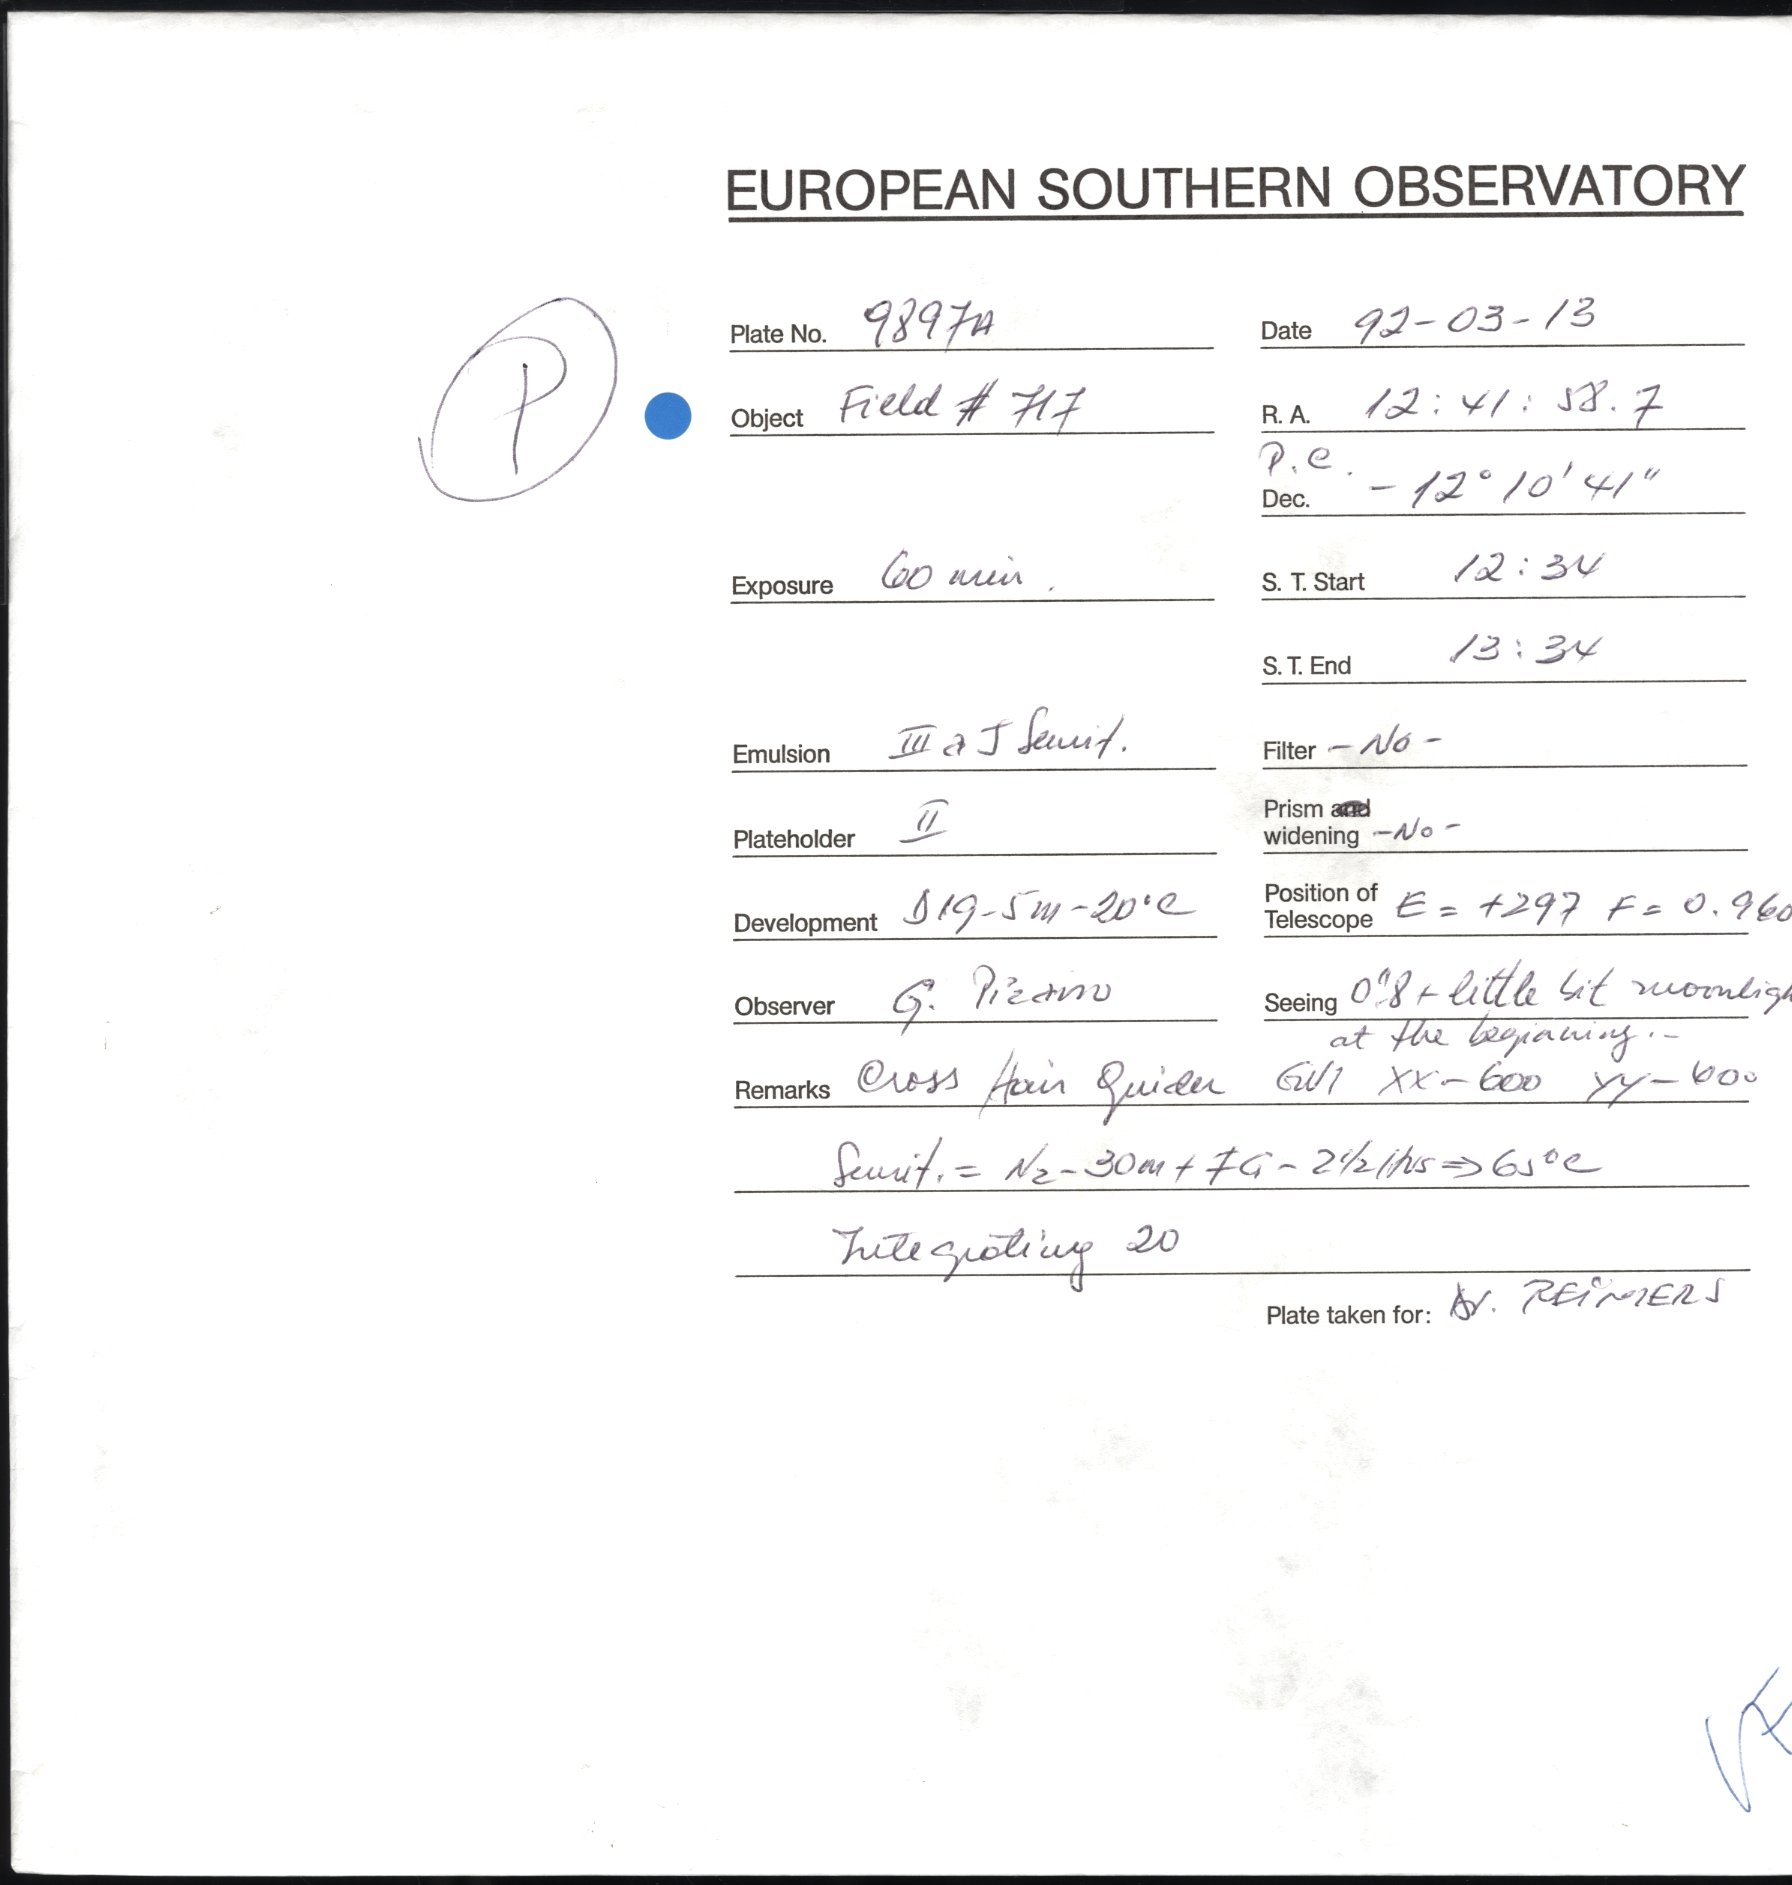 EUROPEAN SOUTHERN OBSERVATORY
P
Plate No. 9897A Date 92-03-13
Object Field # 717 R. A. 12:41:58.7
P.C.
Dec. -12° 10' 41"
Exposure 60 min. S. T. Start 12:34
S. T. End 13:34
Emulsion III a J Sensit. Filter -No-
Plateholder II Prism and
widening -No-
Development D19-5m-20°C Position of
Telescope E = +297 F = 0.960
Observer G. Pizarro Seeing 0"8 + little bit moonligh
at the beginning.-
Remarks Cross Hair Guider XX-600 YY-600
Sensit. = N2-30m + FG - 2 1/2 Hrs => 65°C
Integrating 20
Plate taken for: Dr. REIMERS